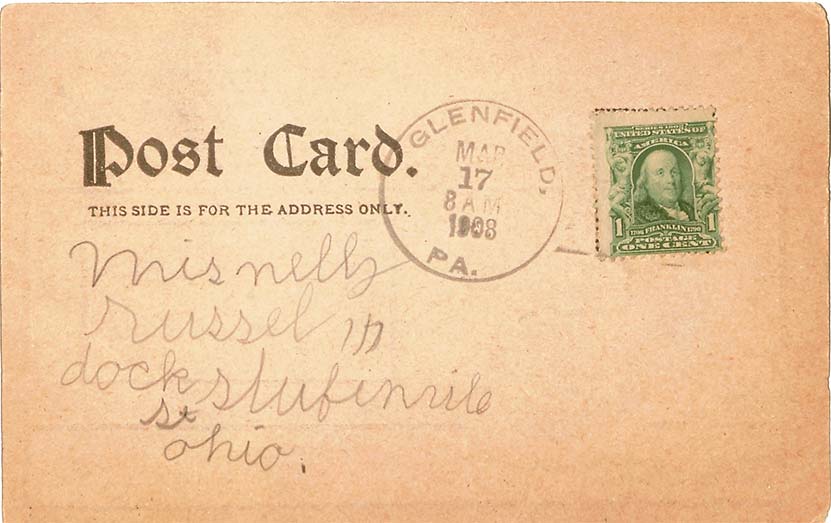 Post Card.
THIS SIDE IS FOR THE ADDRESS ONLY.
GLENFIELD,
MAR
17
8 AM
1908
PA.
SERIES 1902
UNITED STATES OF
AMERICA
1 1706 FRANKLIN 1790 1
POSTAGE
ONE CENT
mis nelly
russel
dock stufinvile
st
ohio.